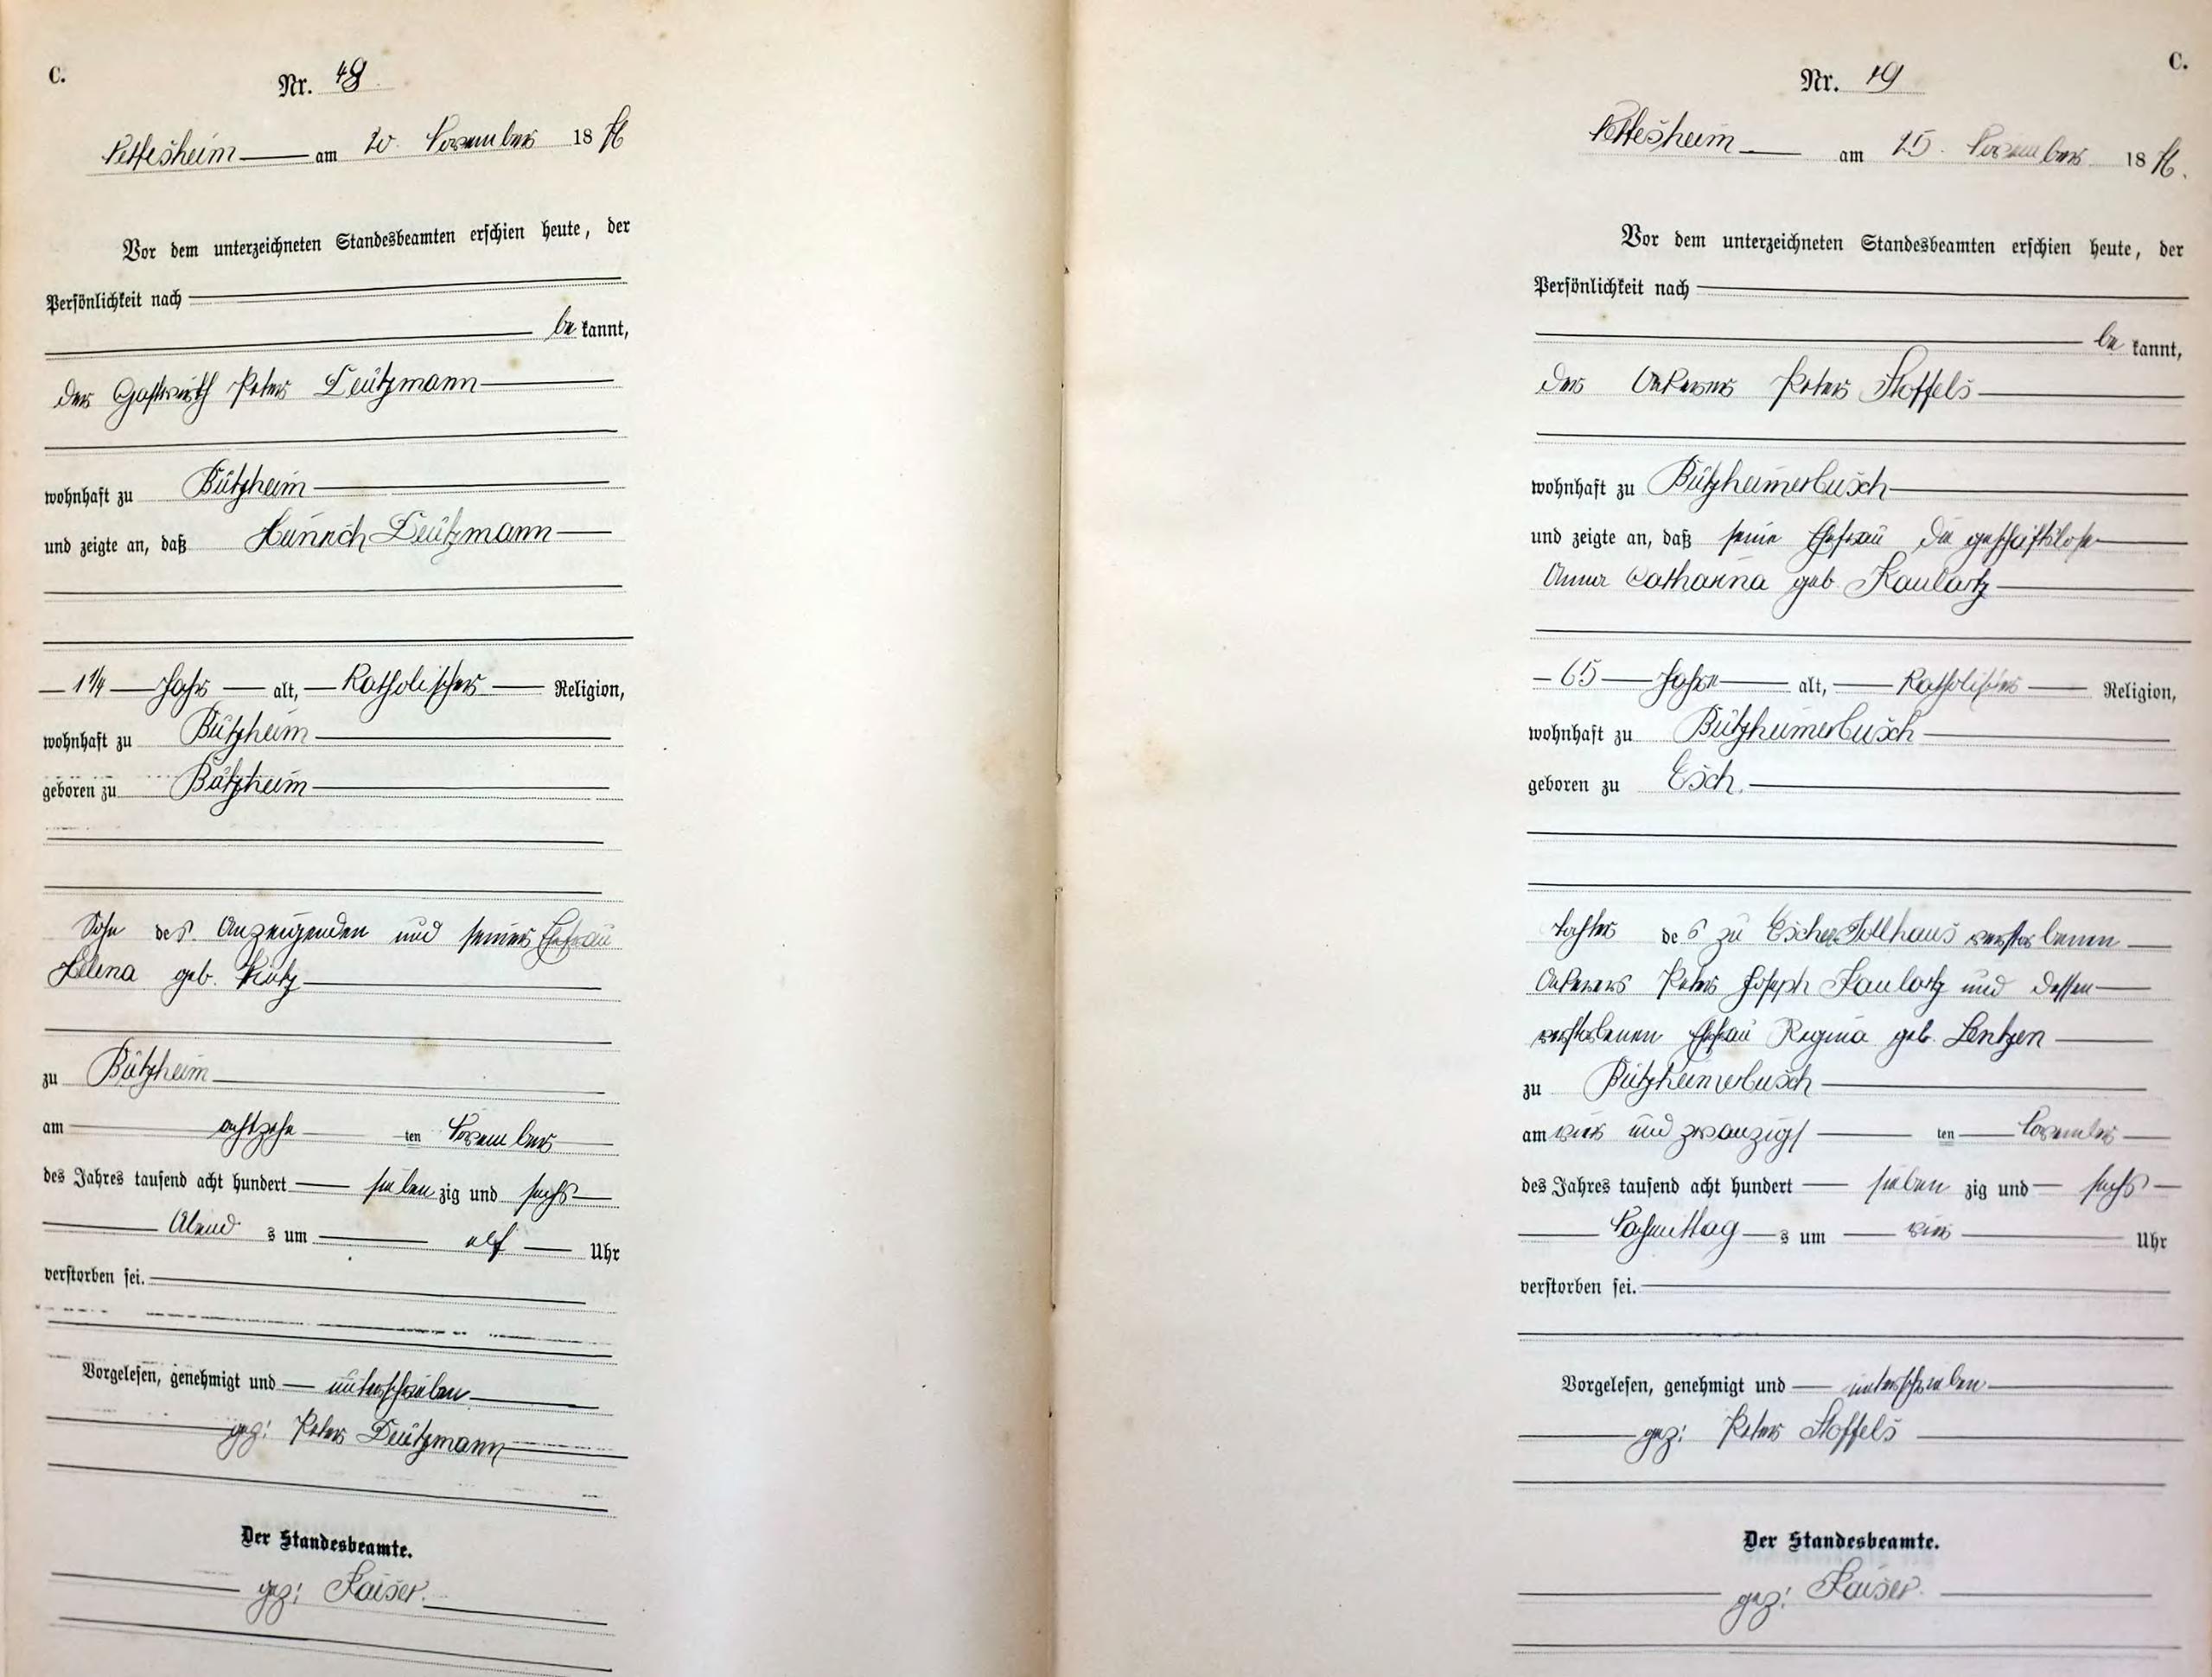 C.
Nr. 48
Nettesheim am 20. November 1876
Vor dem unterzeichneten Standesbeamten erschien heute, der
Persönlichkeit nach
be kannt,
der Gastwirth Peter Deützmann
wohnhaft zu Bützheim
und zeigte an, daß Heinrich Deützmann
1 1/4 Jahr alt, Katholischer Religion,
wohnhaft zu Bützheim
geboren zu Bützheim
Sohn des Anzeigenden und seiner Ehefrau
Helena geb.
zu Bützheim
am achtzehn ten November
des Jahres tausend acht hundert sieben zig und sechs
Abend s um elf Uhr
verstorben sei.
Vorgelesen, genehmigt und unterschrieben
gez: Peter Deützmann
Der Standesbeamte.
gez: Kaiser.
C.
Nr. 49
Nettesheim am 25. November 1876.
Vor dem unterzeichneten Standesbeamten erschien heute, der
Persönlichkeit nach
be kannt,
der Ackerer Peter Stoffels
wohnhaft zu Bützheimerbusch
und zeigte an, daß seine Ehefrau die geschäftslose
Anna Catharina geb Kaulartz
65 Jahre alt, Katholischer Religion,
wohnhaft zu Bützheimerbusch
geboren zu Esch.
Tochter des zu Escher Zollhaus verstorbenen
Ackerers Peter Joseph Kaulartz und dessen
verstorbenen Ehefrau Regina geb. Lentzen
zu Bützheimerbusch
am vier und zwanzigs ten November
des Jahres tausend acht hundert sieben zig und sechs
Nachmittag s um vier Uhr
verstorben sei.
Vorgelesen, genehmigt und unterschrieben
gez: Peter Stoffels
Der Standesbeamte.
gez: Kaiser.